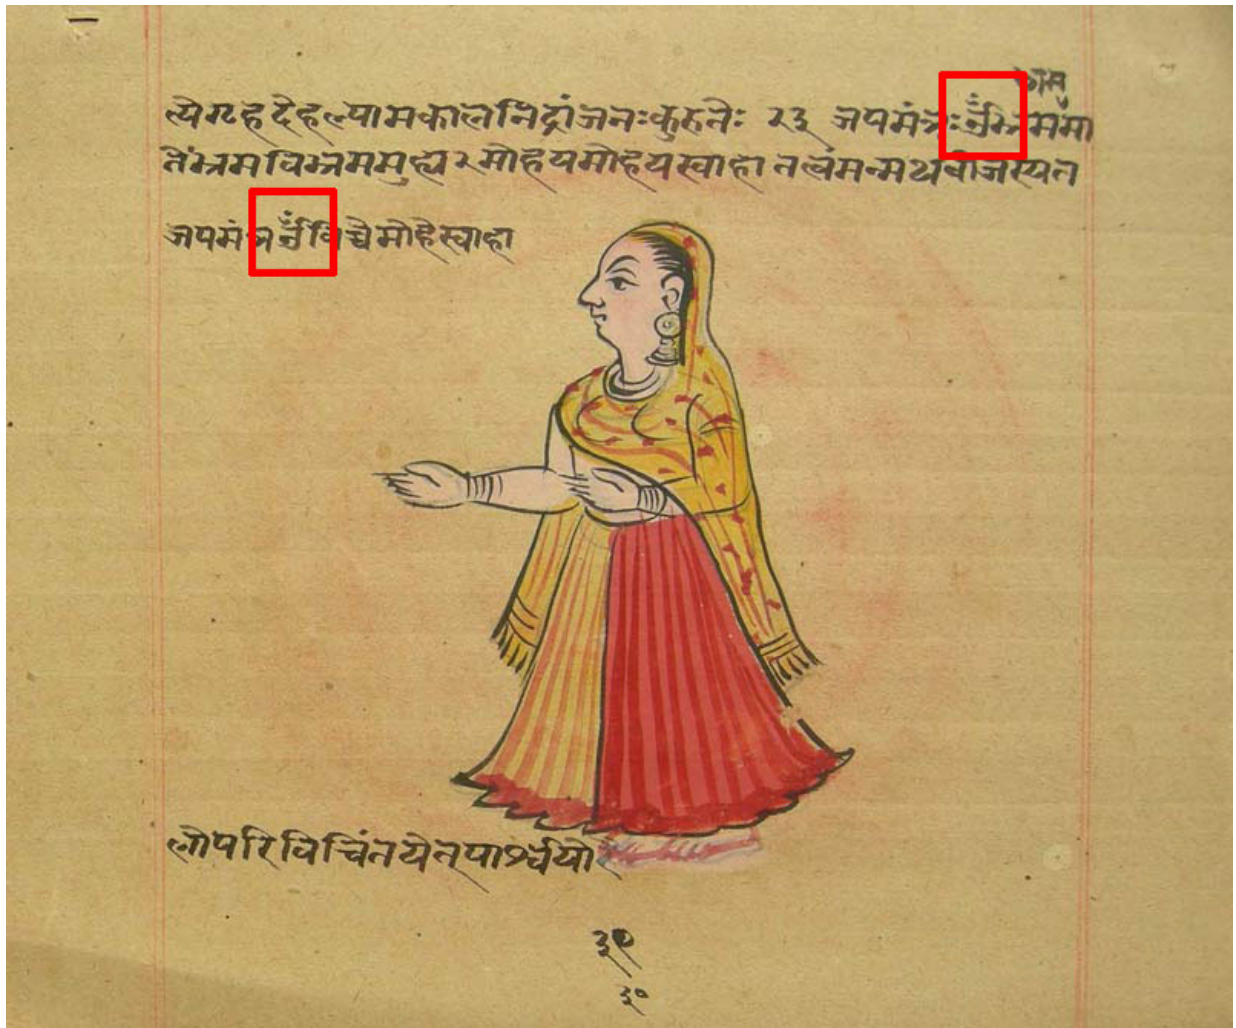 त्येगृहदेहल्यामकालनिद्रांजनःकुरुतेः २३ जपमंत्रः ॐ भ्रमभ्रमा
तेभ्रमविभ्रममुह्य२मोहयमोहयस्वाहातत्वंमन्मथबीजस्यत
जपमंत्र ॐ विच्चैमोहेस्वाहा
लोपरिविचिंतयेत्पार्श्वयो
३९
३०